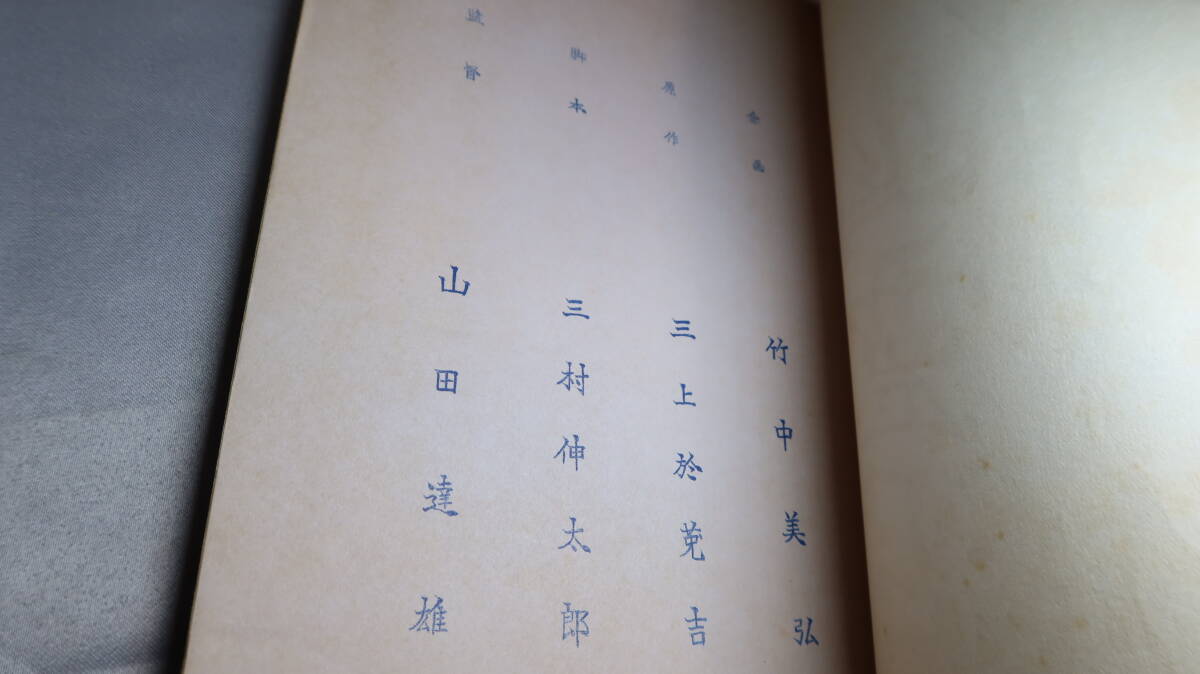 企画 竹中美弘
原作 三上於莵吉
脚本 三村伸太郎
監督 山田達雄